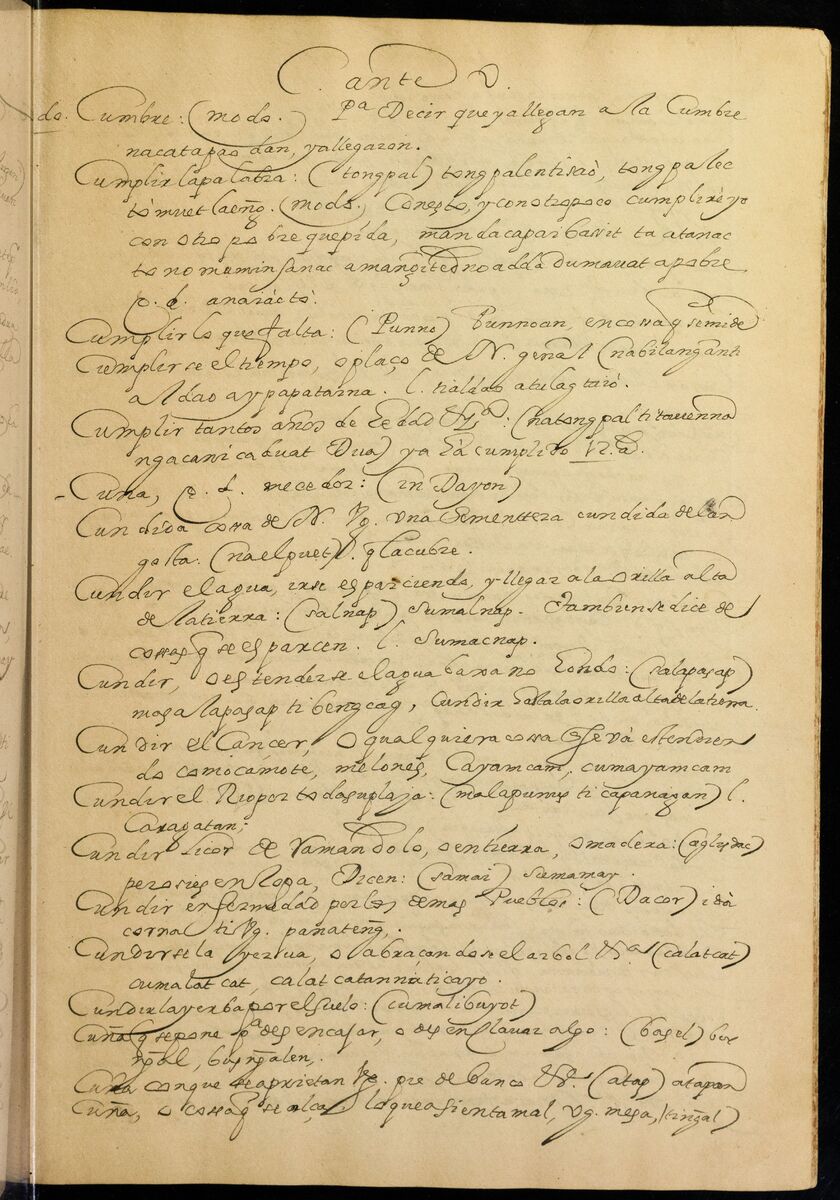 C. ante V.
Cumbre: (mods.) Pª Decir que ya llegan a la Cumbre
nacatapao dan, ya llegaron.
Cumplir la palabra: (tongpal) tongpalentisciò, tongpalec
tò muet laeng̃. (mods.) Conesto, y con otro poco cumplirè yo
con otro pobre que pida, mandacapaibasit ta atanac
to no mamin sanac a mang̃ited no adda dumauat a pobre
anaiàctò.
Cumplir lo que falta: (Punno) Punnoan, en cossa q̃ se mide
Cumplirse el tiempo, o plaço de N. gen̄al (nabilangan ti
aldao ay papatarna. l. tialdao a tulag taiò.
Cumplir tantos años de Edad Vgª: (natongpal ti tauenna
nga canicabuat Dua) ya hà cumplido 12. aª.
Cuna, mecedor: (in Dayon)
Cundida cossa de N. Vg. una Sementtera cundida de lan
gosta: (naelpuet) l. q̃ la cubre.
Cundir el agua, irse esparciendo, y llegar a la orilla alta
de la tierra: (salnap) sumalnap. Tambien se dice de
cossas q̃ se esparcen. l. sumacnap.
Cundir, o estenderse el agua baxa no hondo: (salapasap)
mosalapasap ti bengcag, Cundir hasta la orilla alta de la tierra.
Cundir el Cancer, o qualquiera cossa q̃ se và estendien
do como càmote, melones, Cayamcam, cumayamcam
Cundir el Rio por toda su plaja: (malapunus ti capanagan) l.
Caragatan;
Cundir licor derramandolo, o en tierra, o madera: (aglusdac)
pero si es en Ropa, Dicen: (samai) sumamay.
Cundir enfermedad por los demas Pueblos: (Dacor) idà
corna ti Vg. panateng̃.
Cundirse la yerva, o abraçandose el arbol Vª (calatcat)
cumalatcat, calatcatanna ti cayo.
Cundir la yerba por el suelo: (cumalibuyot)
Cuña q̃ se pone pª desencajar, o desenclavar algo: (basel) bu
ng̃bl, busng̃alen.
Cuña con que se aprietan Vg. pie de banco Vª. (atap) atapan
Cuña, o cossa q̃ se alça lo que asienta mal, Vg. mesa, (tingal)